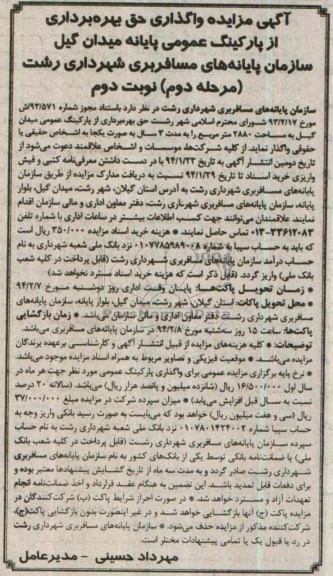 آگهی مزایده واگذاری حق بهره‌برداری
از پارکینگ عمومی پایانه میدان گیل
سازمان پایانه‌های مسافربری شهرداری رشت
(مرحله دوم) نوبت دوم
سازمان پایانه‌های مسافربری شهرداری رشت در نظر دارد باستناد مجوز شماره ۹۳/۵۷۱/ش
مورخ ۹۳/۲/۱۷ شورای محترم اسلامی شهر رشت حق بهره‌برداری از پارکینگ عمومی میدان
گیل به مساحت ۲۸۸۰ متر مربع را به مدت ۳ سال به صورت یکجا به اشخاص حقیقی یا
حقوقی واگذار نماید. از کلیه شرکت‌ها، موسسات و اشخاص علاقمند دعوت می‌شود از
تاریخ دومین انتشار آگهی به تاریخ ۹۴/۱/۲۳ با در دست داشتن معرفی‌نامه کتبی و فیش
واریزی خرید اسناد تا تاریخ ۹۴/۱/۲۹ نسبت به دریافت مدارک مزایده از طریق سازمان
پایانه‌های مسافربری شهرداری رشت به آدرس استان گیلان، شهر رشت، میدان گیل، بلوار
پایانه، سازمان پایانه‌های مسافربری شهرداری رشت، دفتر معاون اداری و مالی سازمان اقدام
نمایند. علاقمندان می‌توانند جهت کسب اطلاعات بیشتر در ساعات اداری با شماره تلفن
۰۱۳-۳۳۶۱۲۰۸۳ تماس حاصل نمایند. * هزینه خرید اسناد مزایده ۳۵۰/۰۰۰ ریال است
که باید به حساب سیبا به شماره ۰۱۰۷۷۸۵۹۸۹۰۰۸ نزد بانک ملی شعبه شهرداری به نام
حساب درآمد سازمان پایانه‌های مسافربری شهرداری رشت (قابل پرداخت در کلیه شعب
بانک ملی) واریز گردد. (قابل ذکر است که هزینه خرید اسناد مسترد نخواهد شد)
* زمان تحویل پاکت‌ها: پایان وقت اداری روز دوشنبه مورخ ۹۴/۲/۷
* محل تحویل پاکات: استان گیلان شهر رشت، میدان گیل، بلوار پایانه، سازمان پایانه‌های
مسافربری شهرداری رشت دفتر معاون اداری و مالی سازمان می‌باشد. * زمان بازگشایی
پاکت‌ها: ساعت ۱۵ روز سه‌شنبه مورخ ۹۴/۲/۸ در سازمان پایانه‌های مسافربری می‌باشد.
توضیحات: * کلیه هزینه‌های مزایده از قبیل انتشار آگهی و کارشناسی برعهده برندگان
مزایده می‌باشد. * موقعیت فیزیکی و تصاویر مربوط به همراه اسناد مزایده موجود می‌باشد.
* نرخ پایه برگزاری مزایده عمومی برای واگذاری پارکینگ عمومی مورد نظر جهت هر ماه در
سال اول ۱۶/۵۰۰/۰۰۰ ریال (شانزده میلیون و پانصد هزار ریال) می‌باشد. (سالانه ۲۰ درصد
نسبت به سال قبل افزایش می‌یابد) * میزان سپرده شرکت در مزایده مبلغ ۳۷/۰۰۰/۰۰۰
ریال (سی و هفت میلیون ریال) خواهد بود که می‌بایست به صورت رسید بانکی واریز وجه به
حساب سیبا شماره ۰۱۰۷۸۰۱۴۲۴۰۰۲ نزد بانک ملی شعبه شهرداری رشت به نام حساب
سپرده سازمان پایانه‌های مسافربری شهرداری رشت (قابل پرداخت در کلیه شعب بانک
ملی) یا ضمانت‌نامه بانکی توسط یکی از بانک‌های کشور به نام سازمان پایانه‌های مسافربری
شهرداری رشت صادر گردد و به مدت سه ماه از تاریخ گشایش پیشنهادها معتبر بوده و
برای دفعات قابل تمدید باشد. این تضمین به هنگام عقد قرارداد و اخذ ضمانت‌نامه انجام
تعهدات آزاد و مسترد خواهد شد. * در صورت احراز شرایط پاکت (ب) شرکت‌کنندگان در
مزایده پاکت (ج) آنها بازگشایی خواهد شد و در غیر اینصورت بدون بازگشایی پاکت (ج)،
شرکت‌کننده مذکور از مزایده حذف می‌شود. * سازمان پایانه‌های مسافربری شهرداری رشت
در رد یا قبول یک یا تمامی پیشنهادات مختار است.
مهرداد حسینی - مدیرعامل